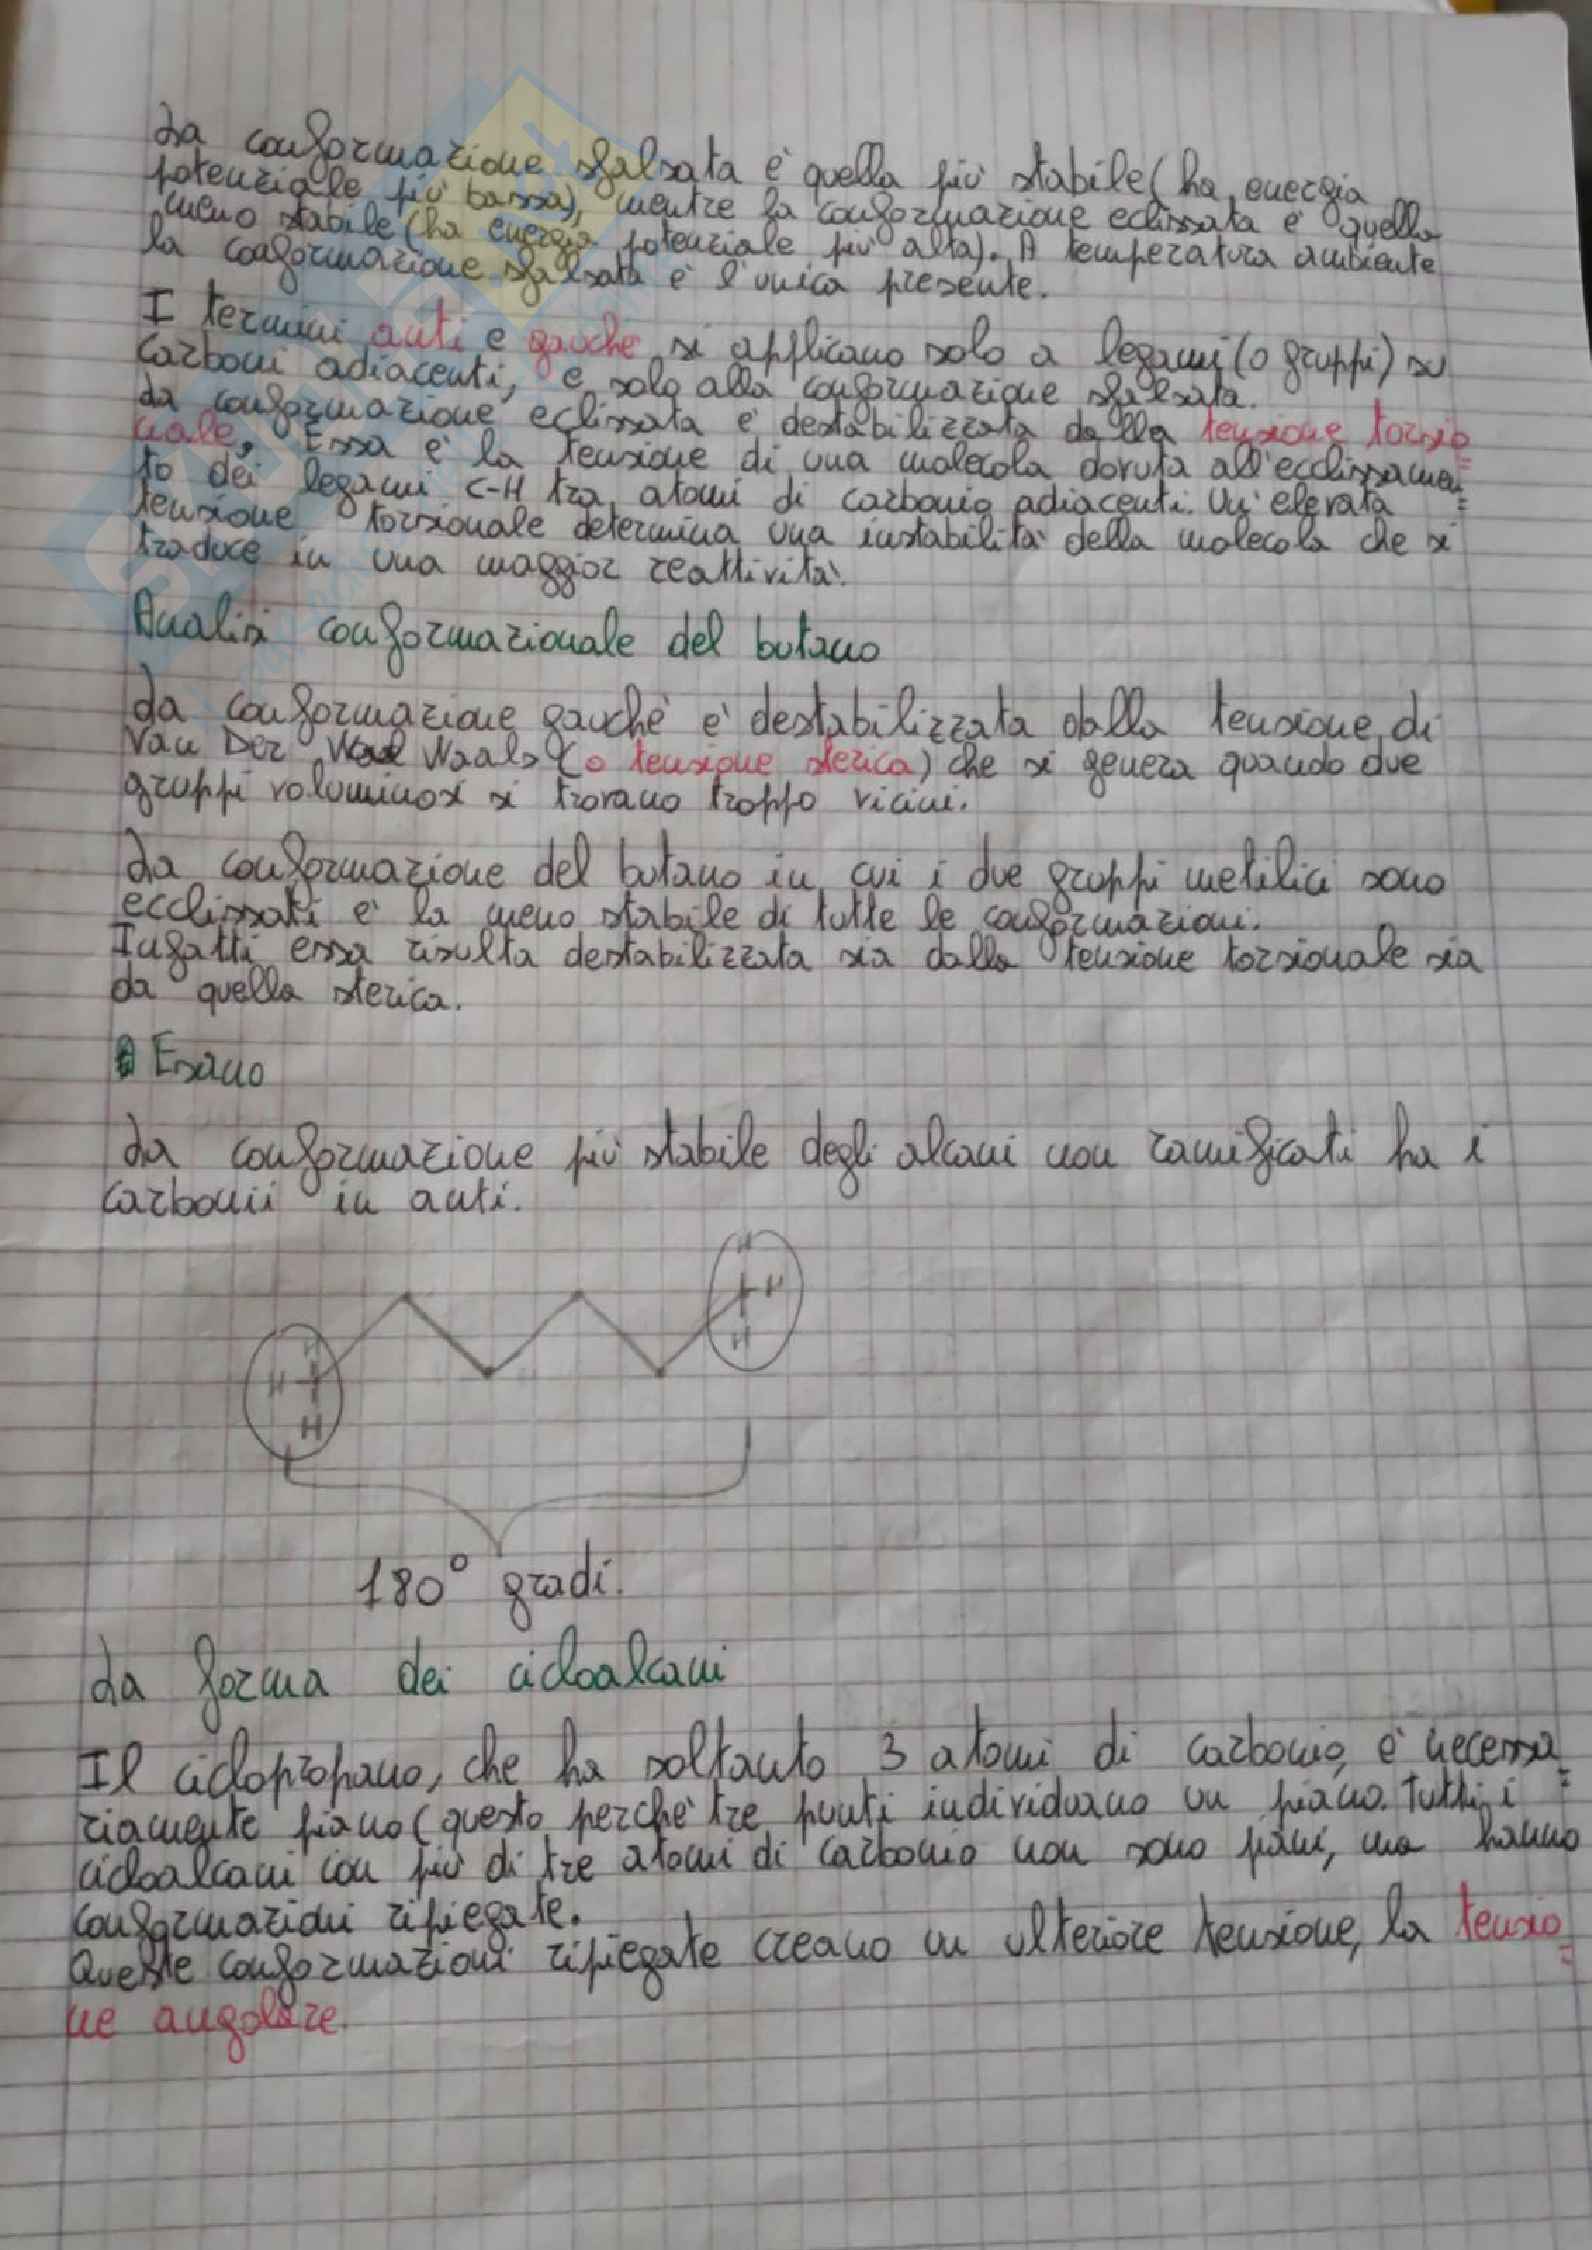 La conformazione sfalsata è quella più stabile (ha energia
potenziale più bassa), mentre la conformazione eclissata è quella
meno stabile (ha energia potenziale più alta). A temperatura ambiente
la conformazione sfalsata è l'unica presente.
I termini anti e gauche si applicano solo a legami (o gruppi) su
carboni adiacenti, e solo alla conformazione sfalsata.
La conformazione eclissata è destabilizzata dalla tensione torsio=
nale. Essa è la tensione di una molecola dovuta all'ecclissamen=
to dei legami C-H tra atomi di carbonio adiacenti. Un'elevata
tensione torsionale determina una instabilità della molecola che si
traduce in una maggior reattività.
Analisi conformazionale del butano
La conformazione gauche è destabilizzata dalla tensione di
Van Der Waals (o tensione sterica) che si genera quando due
gruppi voluminosi si trovano troppo vicini.
La conformazione del butano in cui i due gruppi metilici sono
ecclissati è la meno stabile di tutte le conformazioni.
Infatti essa risulta destabilizzata sia dalla tensione torsionale sia
da quella sterica.
Esano
La conformazione più stabile degli alcani non ramificati ha i
carbonii in anti.
H
H
H
H
H
H
180° gradi.
La forma dei cicloalcani
Il ciclopropano, che ha soltanto 3 atomi di carbonio, è necessa=
riamente piano (questo perchè tre punti individuano un piano. Tutti i
cicloalcani con più di tre atomi di carbonio non sono piani, ma hanno
conformazioni ripiegate.
Queste conformazioni ripiegate creano un ulteriore tensione, la tensio=
ne angolare.